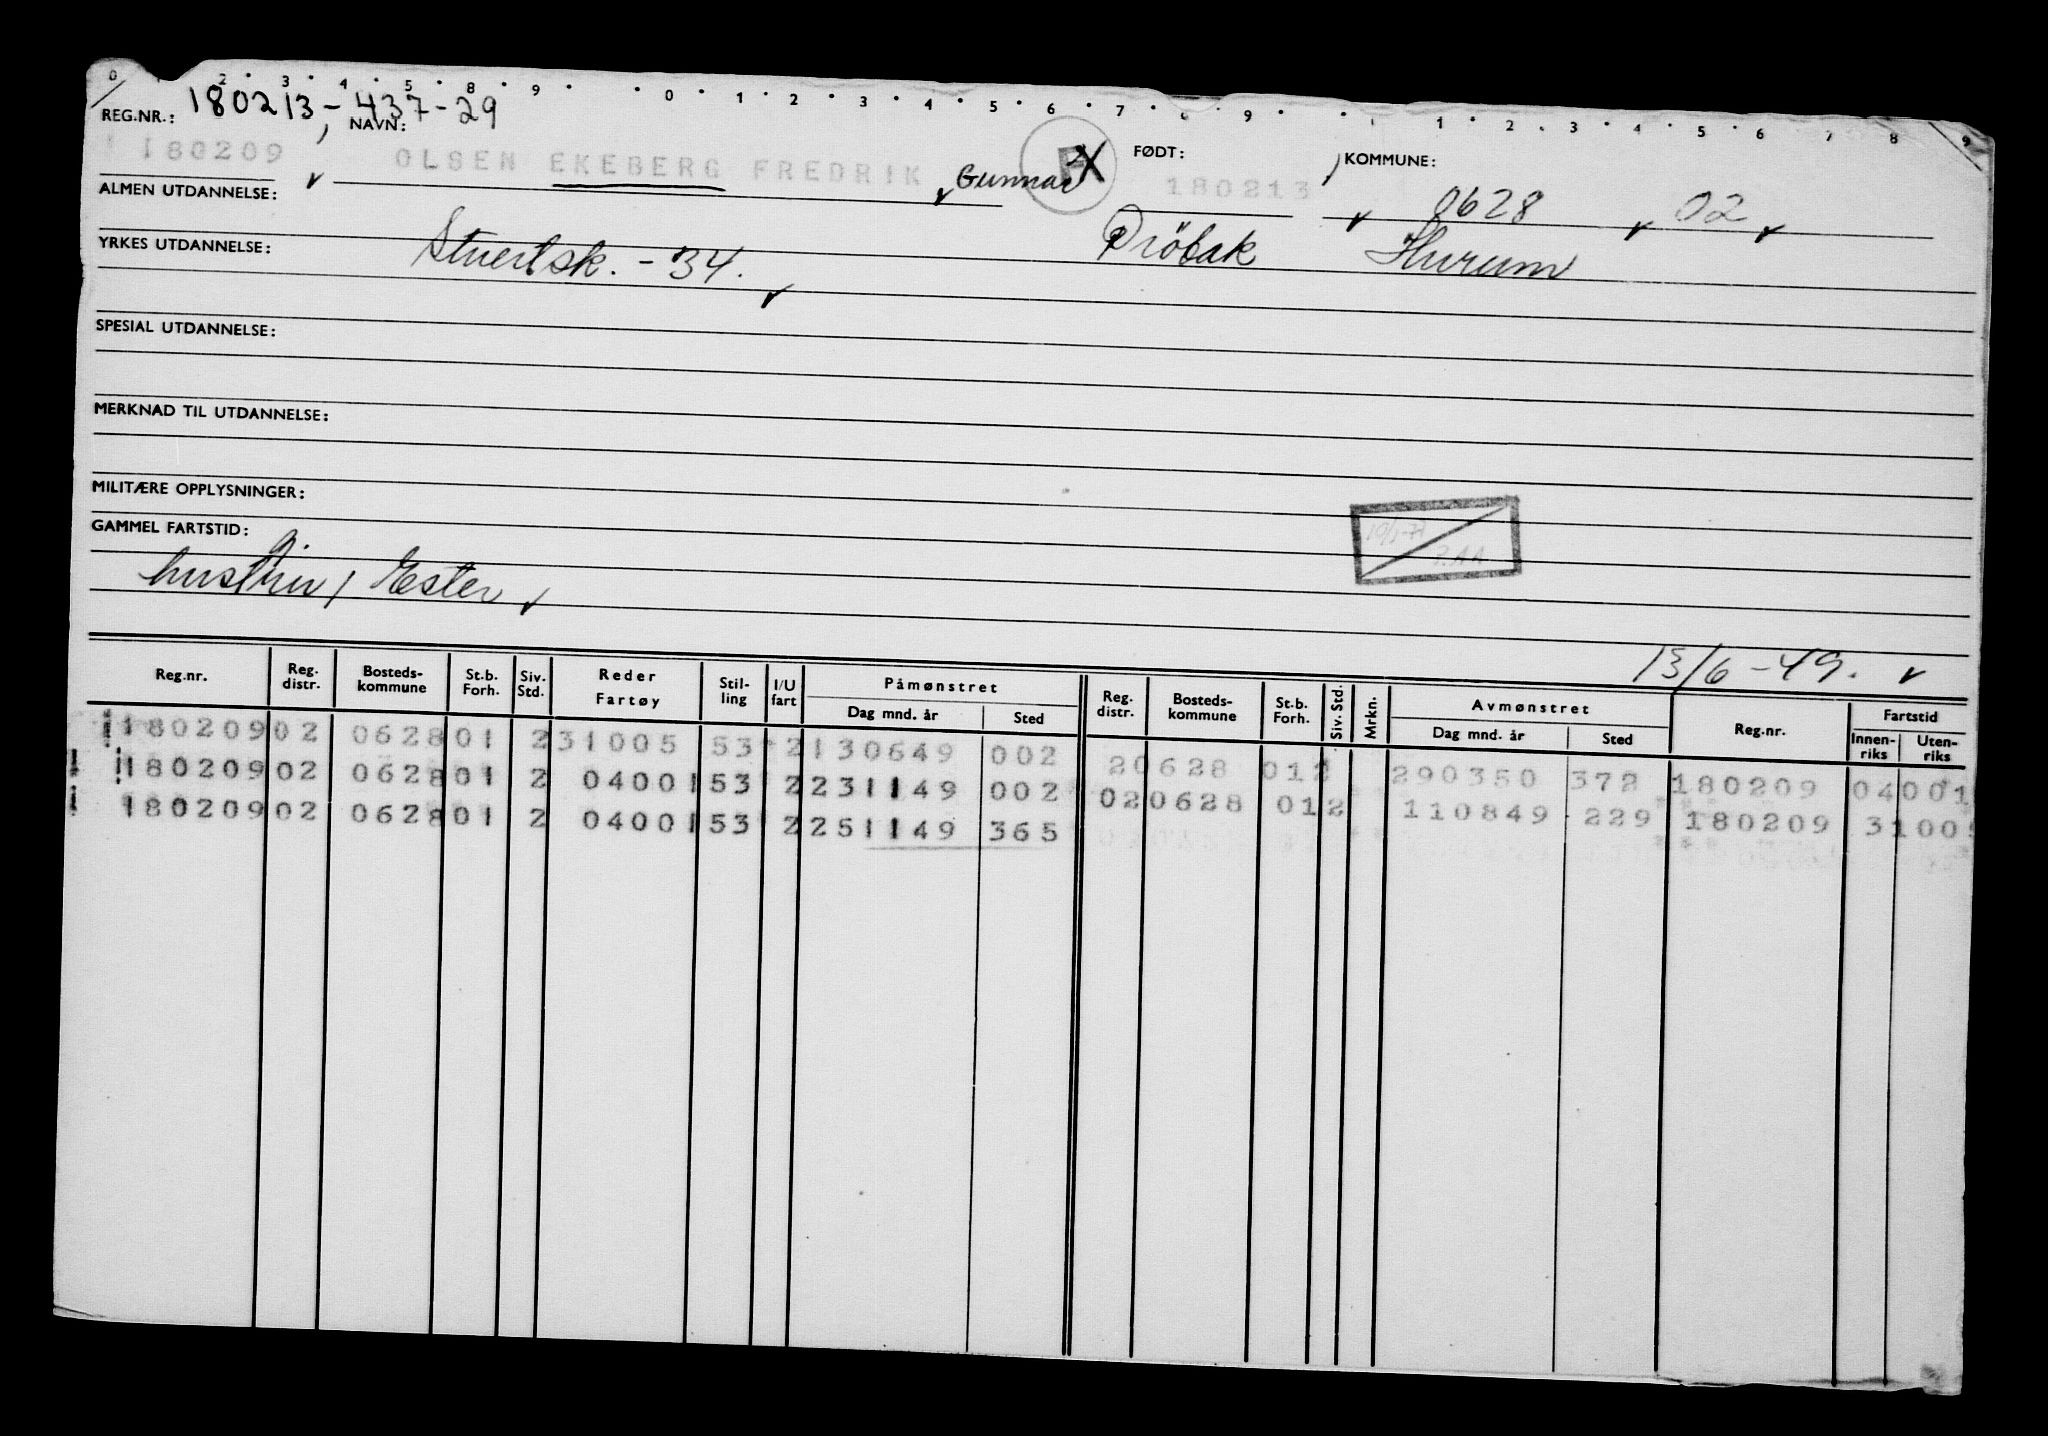 0 2 3 4 5 8 9 0 1 2 3 4 5 6 7 8 9 1 2 3 4 5 6 7 8 9
REG.NR.: 180213-437-29 NAVN: FØDT: KOMMUNE:
180209 OLSEN EKEBERG FREDRIK Gunnar X 180213 0628 02
ALMEN UTDANNELSE:
YRKES UTDANNELSE: Stuertsk. -34. Dröbak Hurum
SPESIAL UTDANNELSE:
MERKNAD TIL UTDANNELSE:
MILITÆRE OPPLYSNINGER:
GAMMEL FARTSTID:
hustru, Ester
13/6-49.
Reg.nr. Reg. distr. Bosteds-kommune St.b. Forh. Siv. Std. Reder Fartøy Stil-ling I/U fart Påmønstret Dag mnd. år Sted Reg. distr. Bosteds-kommune St.b. Forh. Siv. Std. Mrkn. Avmønstret Dag mnd. år Sted Reg.nr. Fartstid Innen-riks Uten-riks
180209 02 0628 01 2 31005 53 2 130649 002 20628 01 2 290350 372 180209 04001
180209 02 0628 01 2 04001 53 2 231149 002 02 0628 01 2 110849 229 180209 31005
180209 02 0628 01 2 04001 53 2 251149 365